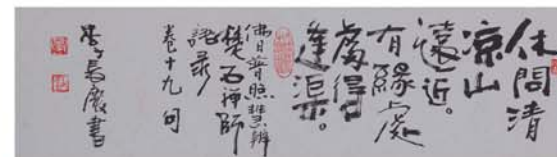 休問清
涼山
遠近。
有緣處
處得
逢渠。
佛日普照慧辨
楚石禪師
語錄
卷十九 句
書